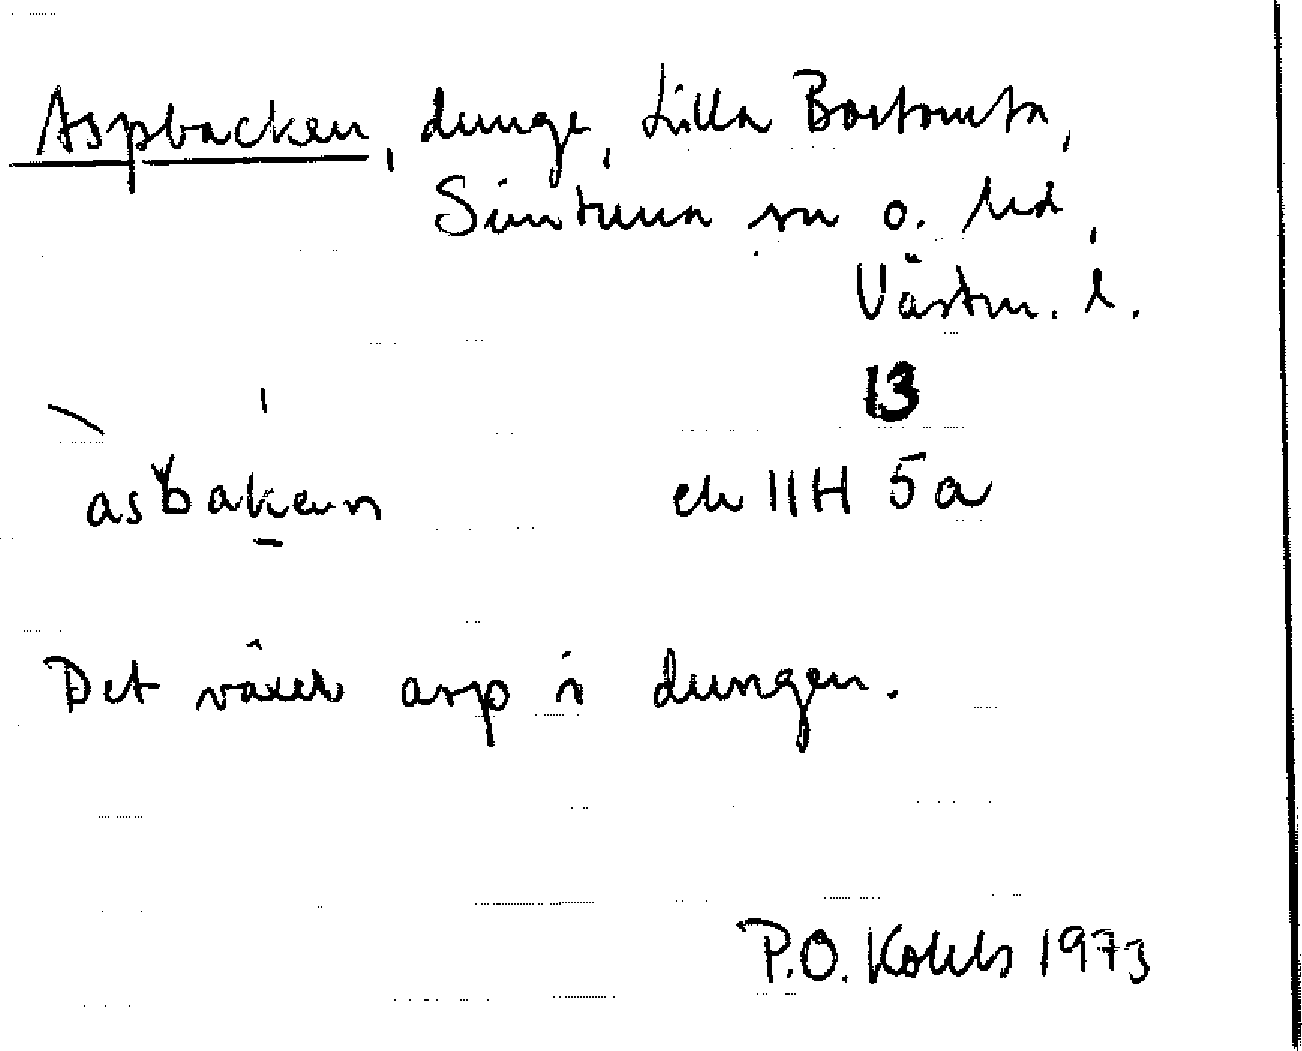 Aspbacken, dunge, Lilla Bortomta,
Simtuna sn o. hd,
Västm. l.
13
asbaken ek 11H 5a
Det växer asp i dungen.
P.O. 1973